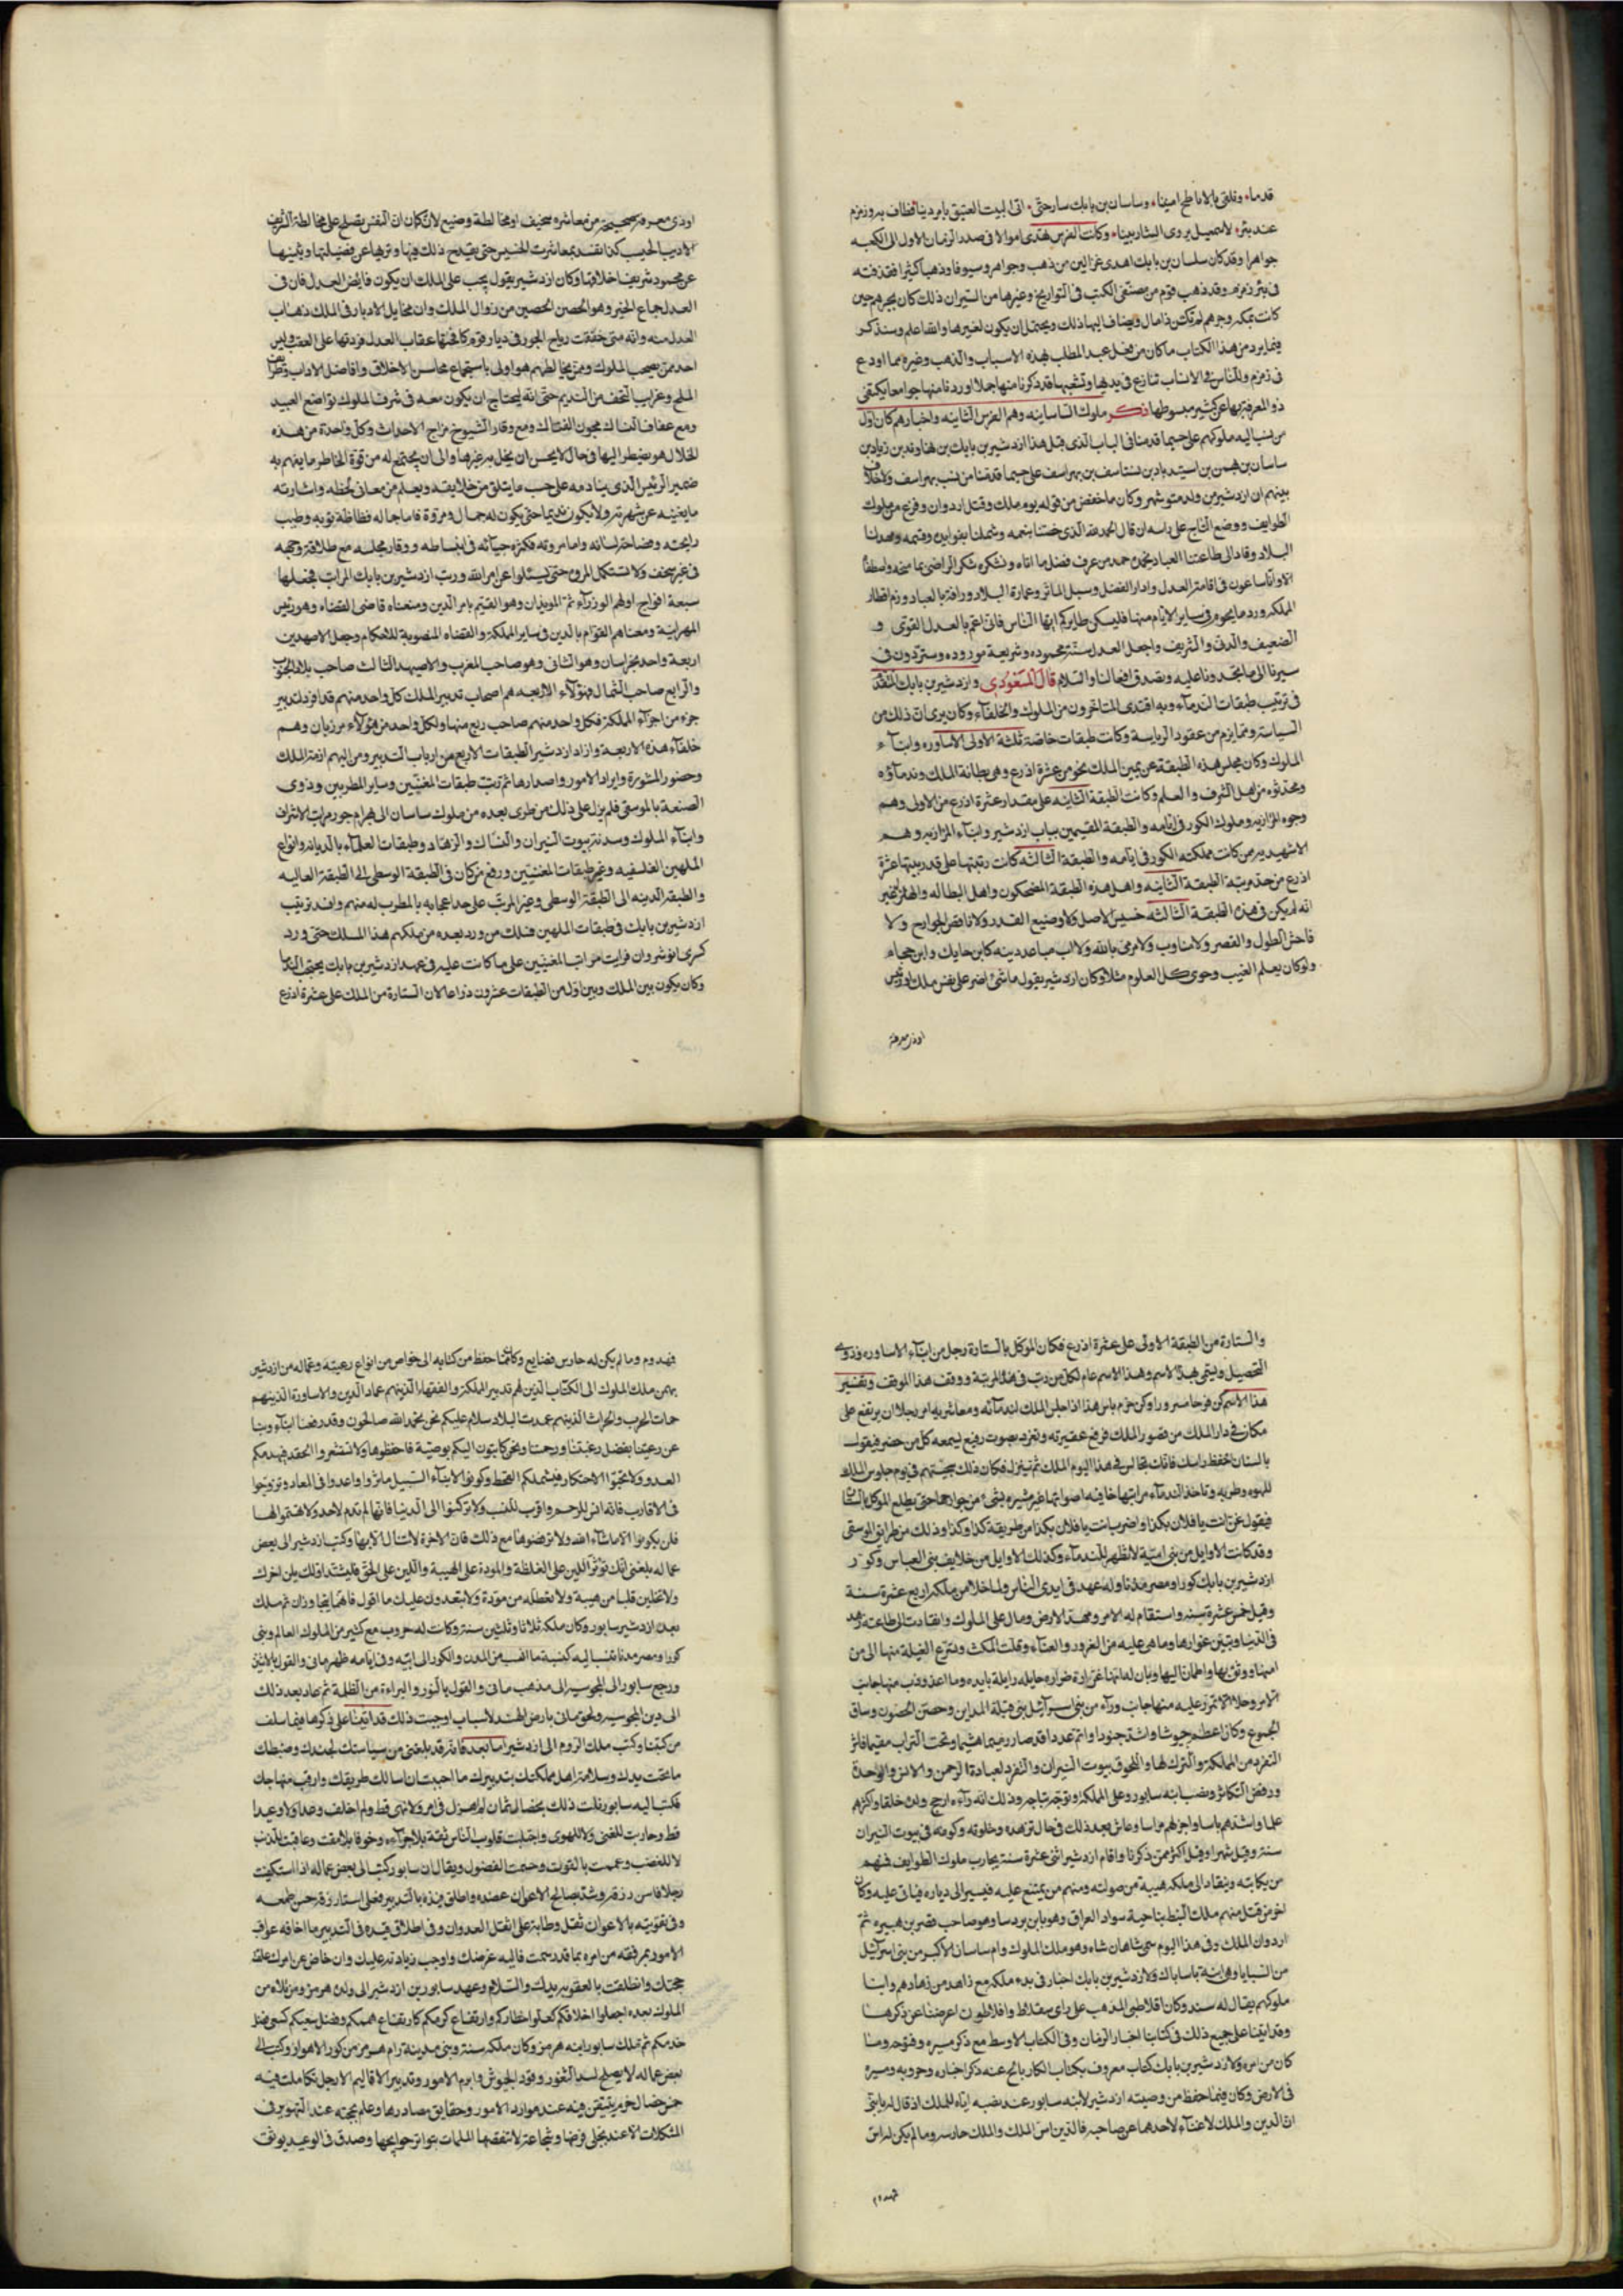 قدما، ونلقى بالاباطح امنينا، وساسان بن بابك سار حتى، اتى البيت العتيق يا بردينا فطاف به وزمزم
عند بئر، لاسمعيل يروى الشاربينا، وكانت الفرس تهدى اموالا فى صدر الزمان الاول الى الكعبه
جواهرا وقد كان ساسان بن بابك اهدى غزالين من ذهب وجواهر وسيوفا وذهبا كثيرا فقذفته
فى بئر زمزم وقد ذهب قوم من مصنفى الكتب فى التواريخ وغيرها من السيران ذلك كان بجرهم حين
كانت بمكه وجرهم لم تكن ذا مال فيضاف اليها ذلك ويحتمل ان يكون لغيرها والله اعلم وسنذكر
فيما يرد من هذا الكتاب ما كان من فعل عبد المطلب بهذه الاسباب والذهب وغيره مما اودع
فى زمزم وللناس فى الانساب تنازع فى بدءها وتشعبها قد ذكرنا منها جملا واوردنا منها جوامعا يكتفى
ذو المعرفة بها عن كثير مبسوطها ذكر ملوك الساسانيه وهم الفرس الثانيه واخبارهم كان اول
من نسب اليه ملوكهم على حسب ما قدمنا فى الباب الذى قبل هذا ازدشير بن بابك بن
ساسان بن بهمن بن اسفنديار بن بستاسف بن بهراسف على حسب ما قدمنا من نسب بهراسف ولا خلاف
بينهم ان ازدشير من ولد منوشهر وكان ما حفظ من قوله يوم ملك وقتل اردوان وفرغ من ملوك
الطوايف ووضع التاج على راسه ان قال الحمد لله الذى خصنا بنعمه وشملنا بفوايده وقسمه ومهد لنا
البلاد وقاد الى طاعتنا العباد نحمده حمد من عرف فضل ما اتاه ونشكره شكر الراضى بما منحه واصطفاه
الا وانا ساعون فى اقامة العدل وادرار الفضل وسبيل الماثر وعمارة البلاد ورافة بالعباد ورم اقطار
المملكه ورد ما نجرم فى ساير الايام منها فليسكن طايركم ايها الناس فانى اعم بالعدل القوى و
الضعيف والدنى والشريف واجعل العدل سنة محموده وشريعة موروده وستردون فى
سيرنا الى ما تحمدونا عليه وتصدق افعالنا والسلام قال المسعودى وازدشير بن بابك المتقدم
فى ترتيب طبقات الندماء وبه اقتدى المتاخرون من الملوك والخلفاء وكان يرى ان ذلك من
السياسة ومما يلزم من عقود الرياسة وكانت طبقات خاصته ثلثة الاولى الاساوره وابناء
الملوك وكان مجلس هذه الطبقة عن يمين الملك نحو من عشرة اذرع وهى بطانة الملك وندماؤه
ومحدثوه من اهل الشرف والعلم وكانت الطبقة الثانيه على مقدار عشرة اذرع من الاولى وهم
وجوه المرازبه وملوك الكور فى ايامه والطبقة المقيمين بباب ازدشير وابناء المرازبه وهم
الاشهبديه من كانت مملكته الكور فى ايامه والطبقة الثالثه كانت رتبتها على قدر بينها عشرة
اذرع من حد مرتبة الطبقة الثانيه واهل هذه الطبقة المضحكون واهل البطاله والهزل غير
انه لم يكن فى هذه الطبقة الثالثه خسيس الاصل ولا وضيع القدر ولا ناقص الجوارح ولا
فاحش الطول والقصر ولا ماوب ولا مرمى بالله ولا اب صاعد دينه كابن حايك وابن حجام
ولو كان يعلم الغيب وحوى كل العلوم مثلا وكان ازدشير يقول ما شئ اضر على نفس ملك او رئيس
او ذى معرفة
او ذى معرفة صحيحه من معاشرة سخيف او مخالطة وضيع لانه كما ان النفس تصلح على مخالطة الشريف
الاديب الحسيب كذا تفسد بمعاشرة الخسيس حتى يقدح ذلك فيها ويزيلها عن فضيلتها ويثنيها
عن محمود شريف اخلاقها وكان ازدشير يقول يجب على الملك ان يكون فايض العدل فان فى
العدل جماع الخير وهو الحصن الحصين من زوال الملك وان مخايل الادبار فى الملك ذهاب
العدل منه وانه متى خفقت رياح الجور فى ديار قوم كافحتها عقاب العدل فردتها على العقب وليس
احد ممن يصحب الملوك وممن يخالطهم هو اولى باستجماع محاسن الاخلاق وافاضل الاداب وظرايف
الملح وغرايب التحف من النديم حتى انه ليحتاج ان يكون معه فى شرف الملوك تواضع العبيد
ومع عفاف النساك مجون الفتاك ومع وقار الشيوخ مزاح الاحداث وكل واحدة من هذه
الخلال هو مضطر اليها فى حال لا يحسن ان يخل به غيرها والى ان يجتمع له من قوة الخاطر ما يفهم به
ضمير الرئيس الذى ينادمه على حسب ما يتلو من خلايقه ويعلم من معانى لحظه واشارته
ما يغنيه عن شهرته ولا يكون نديما حتى يكون له جمال ومروة فاما جماله فنظافة ثوبه وطيب
رايحته وفصاحة لسانه واما مروته فكثرة حيائه فى انبساطه ووقار مجلسه مع طلاقة وجهه
فى غير سخف ولا تستكمل المروة حتى يسئلوا عن امر الله ورتب ازدشير بن بابك المراتب فجعلها
سبعة افواج اولهم الوزراء ثم الموبذان وهو القيم بامر الدين ومعناه قاضى القضاه وهو رئيس
المهرابنه ومعناهم القوام بالدين فى ساير المملكة والقضاه المنصوبة للاحكام وجعل الاصبهدين
اربعة واحد بخراسان وهو الثانى وهو صاحب المغرب والاصبهد الثالث صاحب بلاد الجنوب
والرابع صاحب الشمال فهؤلاء الاربعه هم اصحاب تدبير الملك كل واحد منهم قد افرد لتدبير
جزء من اجزاء المملكة فكل واحد منهم صاحب ربع منها ولكل واحد من هؤلاء مرزبان وهم
خلفاء هذه الاربعه وازاد ازدشير الطبقات الاربع من ارباب التدبير ومن اليهم ازمة الملك
وحضور المشورة وايراد الامور واصدارها ثم رتب طبقات المغنيين وساير المطربين وذوى
الصنعة بالموسقى فلم يزل على ذلك من طرى بعده من ملوك ساسان الى بهرام جور مراتب الاشراف
وابناء الملوك وسدنة بيوت النيران والنساك والزهاد وطبقات العلماء بالديانه وانواع
الملهين الفلسفيه وغير طبقات المغنيين ورفع من كان فى الطبقة الوسطى الى الطبقة العاليه
والطبقة الدنيه الى الطبقة الوسطى وغير المرتب على حد اعجابه بالمطرب له منهم وافسد ترتيب
ازدشير بن بابك فى طبقات الملهين فسلك من ورد بعده من ملكهم هذا المسلك حتى ورد
كسرى انوشروان فرايت مراتب المغنيين على ما كانت عليه فى عهد ازدشير بن بابك
وكان يكون بين الملك وبين اول من الطبقات عشرون ذراعا لان الستارة من الملك على عشرة اذرع
والستارة من الطبقة الاولى على عشرة اذرع فكان الموكل بالستارة رجل من ابناء الاساوره وذوى
التحصيل وليتى بهذا الاسم وهذا الاسم عام لكل من رتب فى هذه المرتبة ووقف هذا الموقف وتفسير
هذا الاسم كن فرحا مسرورا وكن خرم باش هذا اذا جلس الملك لندمائه ومعاشريه امر رجلا ان يرتفع على
مكان فى دار الملك من قصور الملك فرفع عقيرته ويغرد بصوت رفيع ليسمعه كل من حضر فيقول
بالسان احفظ راسك فانك تجالس فى هذا اليوم الملك ثم ينزل فكان ذلك يجيئهم فى يوم جلوس الملك
للهوه وطربه وتاخذ الندماء مراتبها خافيه اصواتها غير مشيره بشئ من جوارحها حتى يطلع الموكل بالستارة
فيقول غن انت يا فلان بكذا واضرب انت يا فلان بكذا من طريقة كذا وكذا وذلك من طرايق الموسقى
وقد كانت الاوايل من بنى امية لا تظهر للندماء وكذلك الاوايل من خلايف بنى العباس وكور
ازدشير بن بابك كورا ومصر مدنا وله عهد فى ايدى الناس ولما خلا من ملكه اربع عشرة سنة
وقيل خمس عشرة سنه واستقام له الامر ومهد الارض وصال على الملوك وانقادت الى طاعته زهد
فى الدنيا وتبين عوارها وما هى عليه من الغرور والعناء وقلة المكث وتسرع الغيلة منها الى من
امنها ووثق بها واطمان اليها وبان له انها غرارة ضرارة حايله زايلة بايده وما اعذوذب منها جانب
لامر وحلا الا تمرر عليه منها جانب وراء من بنى اسرائيل بنى قبله المداين وحصن الحصون وساق
الجموع وكان اعظم جيوشا واشد جنودا واتم عددا قد صار رميما هشيما وتحت التراب مقيما فاثر
التفرد من المملكة والترك لها واللحوق ببيوت النيران والتفرد لعبادة الرحمن والانس والوحدة
ورفض التكاثر ونصب ابنه سابور وعلى المملكة وتوجه بتاجه وذلك انه رآه ارجح ولده خلقا واكثرهم
علما واشدهم باسا واجزلهم مراسا وعاش بعد ذلك فى حال تزهده وخلوته وكونه فى بيوت النيران
سنة وقيل شهرا وقيل اكثر ممن ذكرنا واقام ازدشير اثنى عشرة سنة يحارب ملوك الطوايف فمنهم
من يكاتبه وينقاد الى ملكه هيبة من صولته ومنهم من يمتنع عليه فيسير الى دياره فياتى عليه وكان
اخر من قتل منهم ملك النبط بناحية سواد العراق وهو بابن بردسا وهو صاحب قصر بن هبيره ثم
اردوان الملك وفى هذا اليوم سمى شاهان شاه وهو ملك الملوك وام ساسان الاكبر من بنى اسرائيل
من السبايا وهى ابنة ساسان ولازدشير بن بابك اخبار فى بدء ملكه مع زاهد من زهادهم وابنا
ملوكهم يقال له سند وكان افلاطى المذهب على راى سقلاط وافلاطون اعرضنا عن ذكرها
وقد اتينا على جميع ذلك فى كتابنا اخبار الزمان وفى الكتاب الاوسط مع ذكر سيره وفتوحه وما
كان من امره ولازدشير بن بابك كتاب معروف بكتاب الكارنامج عنه ذكر اخباره وحروبه وسيره
فى الارض وكان فيما حفظ من وصيته ازدشير لابنه سابور عند نصبه اياه للملك اذ قال له يا بنى
ان الدين والملك لا غناء لاحدهما عن صاحبه فالدين اس الملك والملك حارسه وما لم يكن له اس
فمهدوم
فمهدوم وما لم يكن له حارس فضايع وكان مما حفظ من كتابه الى خواص من انواع رعيته وعماله من ازدشير
بهمن ملك الملوك الى الكتاب الذين لهم تدبير المملكة والفقهاء الذين هم عماد الدين والاساورة الذين هم
حماة الحرب والحراث الذين هم عمدة البلاد سلام عليكم نحن بحمد الله صالحون وقد رفعنا
عن رعيتنا بفضل رعبتنا ورحمتنا ونحن كاتبون اليكم بوصية فاحفظوها ولا تستشعروا الحقد فيدهمكم
العدو ولا تحبوا الاحتكار فيشملكم القحط وكونوا لابناء السبيل ماثرا واعدوا فى المعاد وتزوجوا
فى الاقارب فانه امس للرحم واقرب للنسب ولا تركنوا الى الدنيا فانها لم تدم لاحد ولا تهتموا لها
فلن يكون الا ما شاء الله ولا ترفضوها مع ذلك فان الاخرة لا تنال الا بها وكتب ازدشير الى بعض
عماله بلغنى انك توثر اللين على الغلظة والمودة على الهيبة واللين على الحق فليشتد اولك يلن اخرك
ولا تخلين قلبا من هيبة ولا تعطله من مودة ولا تبعدوك عليك ما اقول فانهما يتجاوران ثم ملك
بعد ازدشير سابور وكان ملكه ثلاثا وثلثين سنة وكانت له حروب مع كثير من الملوك العالم وبنى
كورا ومصر مدنا تنسب اليه كنسبة ما انسب من المدن والكور الى ابيه وفى ايامه ظهر مانى والقول بالاثنين
ورجع سابور الى المجوسيه الى مذهب مانى والقول بالنور والبراءة من الظلمة ثم عاد بعد ذلك
الى دين المجوسيه ولحق مانى بارض الهند لاسباب اوجبت ذلك قد اتينا على ذكرها فيما سلف
من كتبنا وكتب ملك الروم الى ازدشير اما بعد فانه قد بلغنى من سياستك لجندك وضبطك
ما تحت يدك وسلامة اهل مملكتك بتدبيرك ما احببت ان اسالك طريقك وارقب منهاجك
فكتب اليه سابور نلت ذلك بخصال ثمان لم اهزل فى امر ولا نهى قط ولم اخلف وعدا ولا وعيدا
قط وحاربت للغنى ولا للهوى واجتلبت قلوب الناس ثقة بلا جراءه وخوفا بلا مقت وعاقبت للذنب
لا للغضب وعممت بالقوت وحسمت الفضول ويقال ان سابور كتب الى بعض عماله اذا استكفيت
رجلا فاسن رزقه وشد بصالح الاعوان عضده واطلق يده بالتدبير ففى اسناء رزقه حسن طمعه
وفى تقويته بالاعوان ثقل وطاة على اهل العدوان وفى اطلاق يده فى التدبير ما اخافه عواقب
الامور ثم رفقه من امره بما قد رسمت فاليه غرضك واوجب زيادته عليك وان خاض عن امرك علقته
حجتك واطلقت بالعقوبه يدك والسلام وعهد سابور بن ازدشير الى ولده هرمز ومن تلاه من
الملوك بعده اجعلوا اخلاقكم كعلو اخطاركم وارتفاع كرمكم كارتفاع هممكم وفضل سعيكم كنسى فضل
خدمكم ثم ملك سابور ابنه هرمز وكان ملكه سنة وبنى مدينة رام هرمز من كور الاهواز وكتب الى
بعض عماله لا يصلح لسد الثغور وقود الجيوش وابرم الامور وتدبير الاقاليم الا رجل تكاملت فيه
خمس خصال حزم يتيقن فيه عند موارد الامور وحقايق مصادرها وعلم يحجه عند التهوير فى
المشكلات الا عند تجلى فرصها وشجاعة لا تنقصها الملمات بتواتر حوايجها وصدق فى الوعيد يوثق